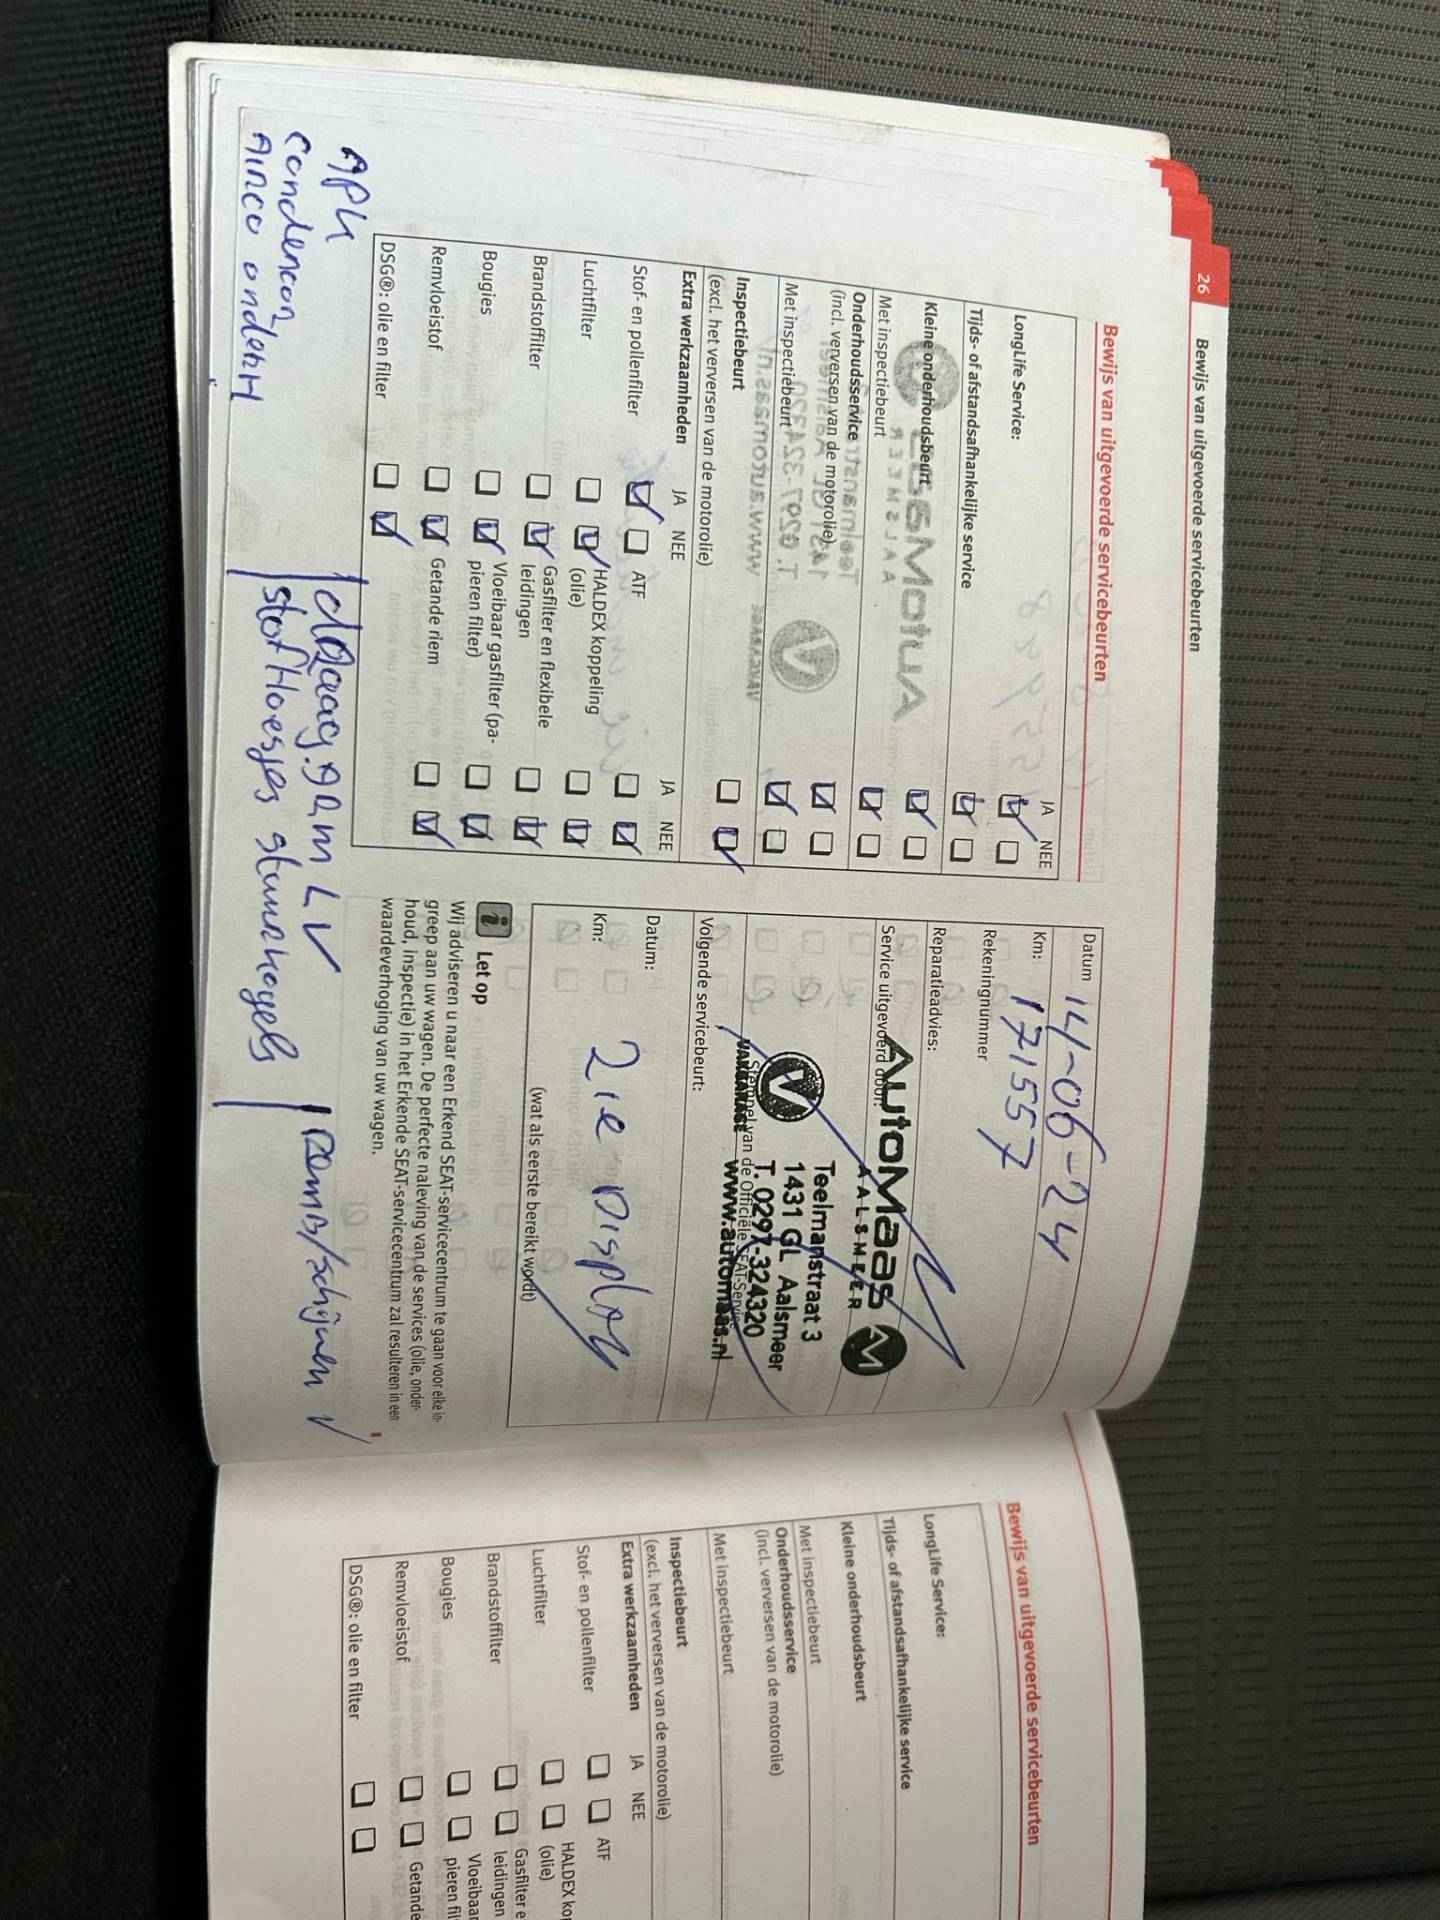 26
Bewijs van uitgevoerde servicebeurten
Bewijs van uitgevoerde servicebeurten
JA NEE
LongLife Service:
Tijds- of afstandsafhankelijke service
Kleine onderhoudsbeurt
Met inspectiebeurt
Onderhoudsservice
(incl. verversen van de motorolie)
Met inspectiebeurt
Inspectiebeurt
(excl. het verversen van de motorolie)
Extra werkzaamheden JA NEE JA NEE
Stof- en pollenfilter ATF
Luchtfilter HALDEX koppeling
(olie)
Brandstoffilter Gasfilter en flexibele
leidingen
Bougies Vloeibaar gasfilter (pa-
pieren filter)
Remvloeistof Getande riem
DSG®: olie en filter
APK
Airco
LV
stofhoesjes stuurkogels
Datum 14-06-24
Km: 171557
Rekeningnummer
Reparatieadvies:
Service uitgevoerd door:
AutoMaas
AALSMEER
Teelmanstraat 3
1431 GL Aalsmeer
T. 0297-324320
www.automaas.nl
VAKGARAGE
Stempel van de Officiële SEAT-Service
Volgende servicebeurt:
Datum:
Zie Display
Km:
(wat als eerste bereikt wordt)
i Let op
Wij adviseren u naar een Erkend SEAT-servicecentrum te gaan voor elke in-
greep aan uw wagen. De perfecte naleving van de services (olie, onder-
houd, inspectie) in het Erkende SEAT-servicecentrum zal resulteren in een
waardeverhoging van uw wagen.
Bewijs van uitgevoerde servicebeurten
LongLife Service:
Tijds- of afstandsafhankelijke service
Kleine onderhoudsbeurt
Met inspectiebeurt
Onderhoudsservice
(incl. verversen van de motorolie)
Met inspectiebeurt
Inspectiebeurt
(excl. het verversen van de motorolie)
Extra werkzaamheden JA NEE
Stof- en pollenfilter ATF
Luchtfilter HALDEX ko
(olie)
Brandstoffilter Gasfilter e
leidingen
Bougies Vloeibaar
pieren fil
Remvloeistof Getande
DSG®: olie en filter